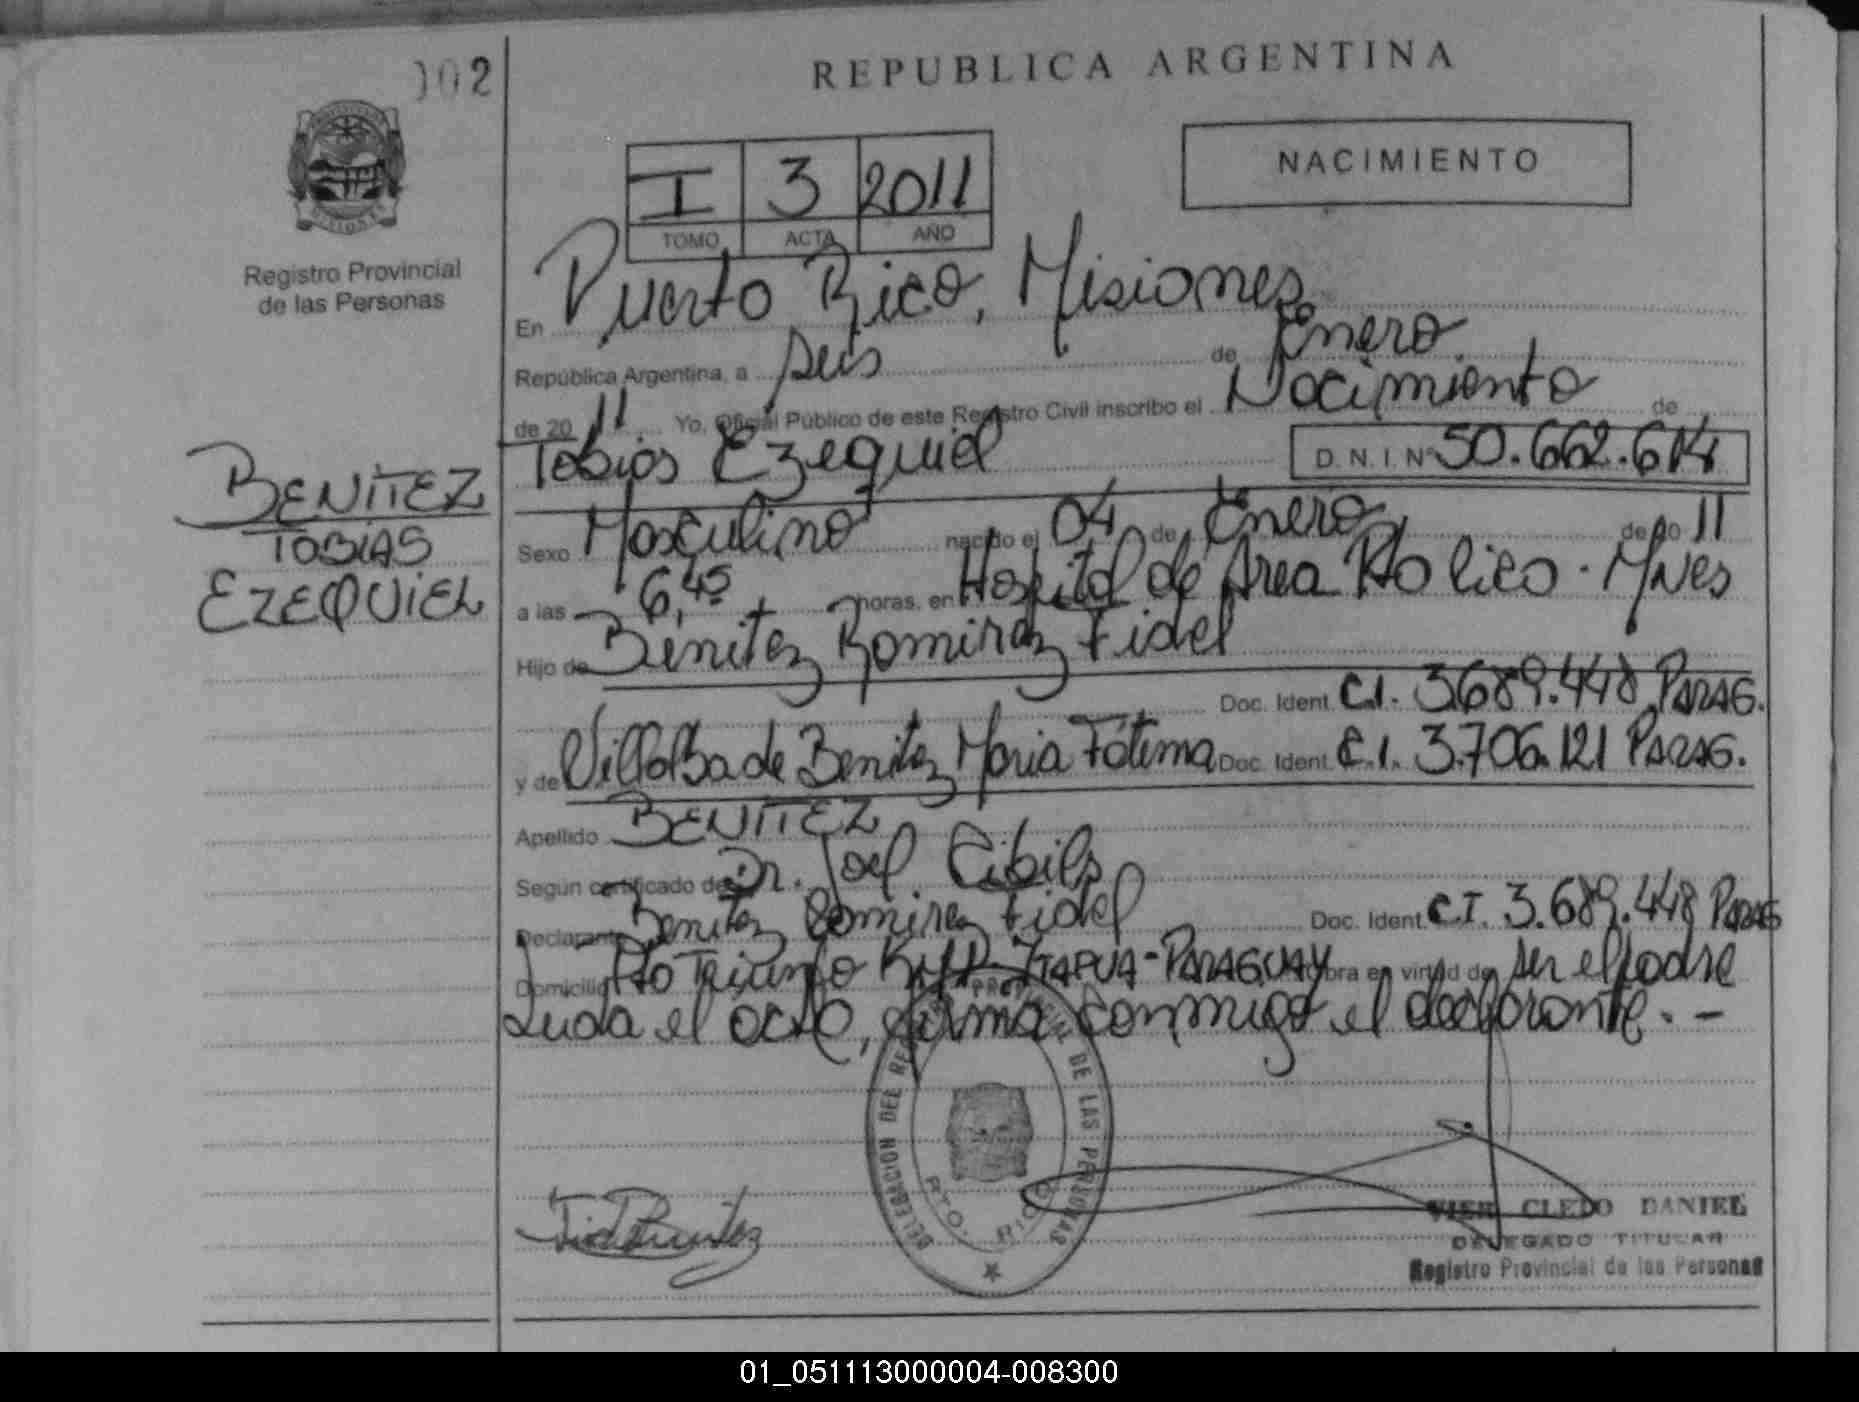 002
REPUBLICA ARGENTINA
NACIMIENTO
I 3 2011
TOMO ACTA AÑO
Registro Provincial
de las Personas
En Puerto Rico, Misiones
República Argentina, a seis de Enero
de 20 11 Yo, Oficial Público de este Registro Civil inscribo el Nacimiento de
Tobias Ezequiel D.N.I. Nº 50.662.614
BENITEZ
TOBIAS
EZEQUIEL
Sexo Masculino nacido el 04 de Enero de 20 11
a las 6,45 horas, en Hospital de Area Pto Rico. Mnes
Hijo de Benitez Ramirez Fidel
Doc. Ident. C.I. 3.689.448 PARAG.
y de Villalba de Benitez Maria Fátima Doc. Ident. C.I. 3.706.121 PARAG.
Apellido BENITEZ
Según certificado de Dr. Joel Cibils
Declarante Benitez Ramirez Fidel Doc. Ident. C.I. 3.689.448 PARAG
Domicilio Pto Triunfo ITAPUA-PARAGUAY obra en virtud de ser el padre
Leida el acta, firma conmigo el declarante. -
DELEGACION DEL REG PROVINCIAL DE LAS PERSONAS
PTO. RICO
Fidel Benitez
VIER CLETO DANIEL
DELEGADO TITULAR
Registro Provincial de las Personas
01_051113000004-008300